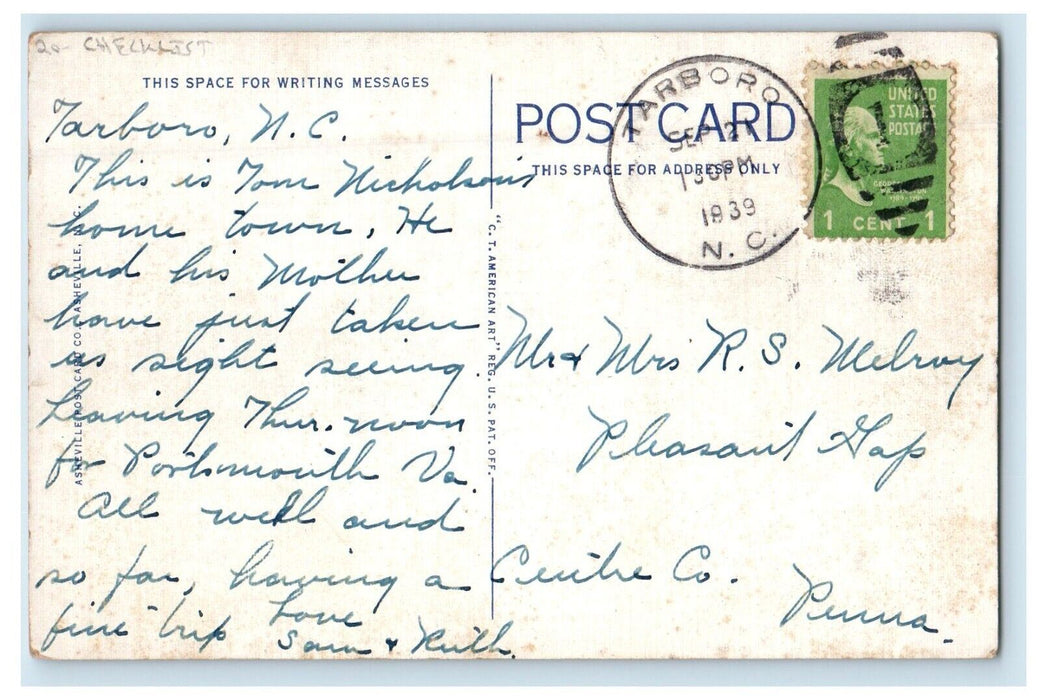 20- CHECKLIST
THIS SPACE FOR WRITING MESSAGES
Tarboro, N.C.
This is Tom Nicholson's
home town. He
and his Mother
have just taken
us sight seeing.
Leaving Thur. noon
for Portsmouth Va.
All well and
so far, having a
fine trip
Love
Sam & Ruth.
ASHEVILLE POST CARD CO., ASHEVILLE, N. C.
"C. T. AMERICAN ART" REG. U. S. PAT. OFF.
POST CARD
THIS SPACE FOR ADDRESS ONLY
TARBORO
SEP 21
130PM
1939
N. C.
UNITED
STATES
POSTAGE
1 CENT 1
Mr & Mrs R. S. Melroy
Pleasant Gap
Centre Co.
Penna.